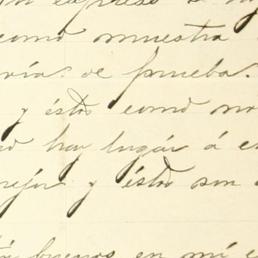 expreso
como muestra
vía: de prueba.
y éstos como no
hay lugár á es
y éstos son
buenos en mi